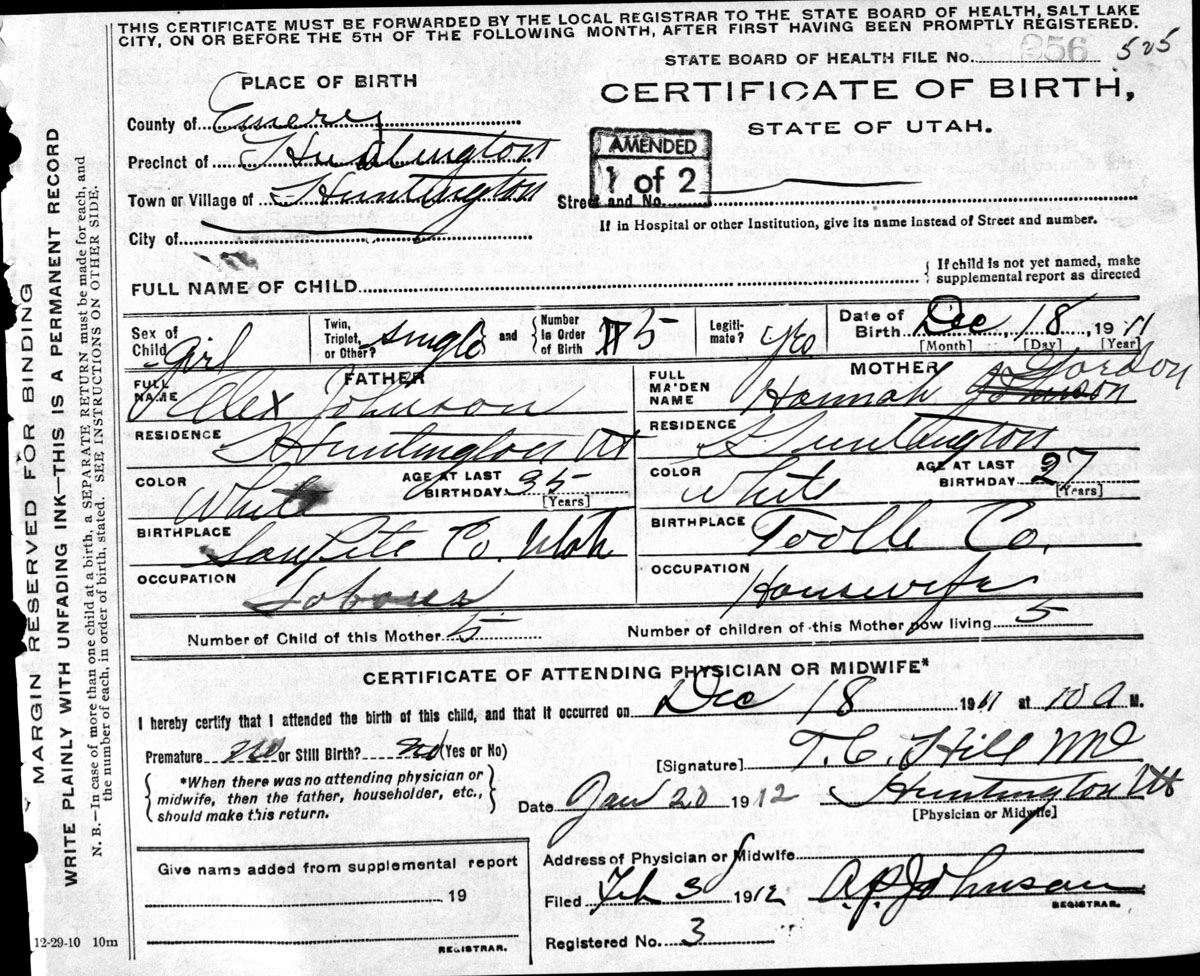 THIS CERTIFICATE MUST BE FORWARDED BY THE LOCAL REGISTRAR TO THE STATE BOARD OF HEALTH, SALT LAKE
CITY, ON OR BEFORE THE 5TH OF THE FOLLOWING MONTH, AFTER FIRST HAVING BEEN PROMPTLY REGISTERED.
STATE BOARD OF HEALTH FILE No. 356 525
PLACE OF BIRTH
CERTIFICATE OF BIRTH,
STATE OF UTAH.
County of Emery
AMENDED
1 of 2
Precinct of Huntington
Town or Village of Huntington
Street and No.
If in Hospital or other Institution, give its name instead of Street and number.
City of
FULL NAME OF CHILD
If child is not yet named, make
supplemental report as directed
Sex of Child Girl
Twin, Triplet, or Other? single and Number in Order of Birth 5
Legitimate? Yes
Date of Birth Dec 18, 1911
[Month] [Day] [Year]
FATHER
FULL NAME Alex Johnson
RESIDENCE Huntington Ut
COLOR White
AGE AT LAST BIRTHDAY 35
[Years]
BIRTHPLACE SanPete Co. Utah
OCCUPATION
MOTHER
FULL MA'DEN NAME Hannah Johnson Gordon
RESIDENCE Huntington
COLOR White
AGE AT LAST BIRTHDAY 27
[Years]
BIRTHPLACE Toolle Co.
OCCUPATION Housewife
Number of Child of this Mother 5
Number of children of this Mother now living 5
CERTIFICATE OF ATTENDING PHYSICIAN OR MIDWIFE*
I hereby certify that I attended the birth of this child, and that it occurred on Dec 18 1911 at 10 a M.
Premature no or Still Birth? no (Yes or No)
[Signature] T. C. Hill MD
*When there was no attending physician or
midwife, then the father, householder, etc.,
should make this return.
Date Jan 20 1912 Huntington Ut
[Physician or Midwife]
Give name added from supplemental report
19
REGISTRAR.
Address of Physician or Midwife
Filed Feb 3 1912 A.P. Johnson
REGISTRAR.
Registered No. 3
12-29-10 10m
MARGIN RESERVED FOR BINDING
WRITE PLAINLY WITH UNFADING INK—THIS IS A PERMANENT RECORD
N. B.—In case of more than one child at a birth, a SEPARATE RETURN must be made for each, and
the number of each, in order of birth, stated. SEE INSTRUCTIONS ON OTHER SIDE.